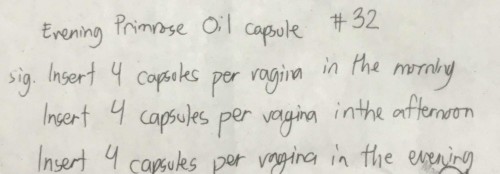 Evening Primrose Oil capsule #32
sig. Insert 4 capsules per vagina in the morning
Insert 4 capsules per vagina in the afternoon
Insert 4 capsules per vagina in the evening